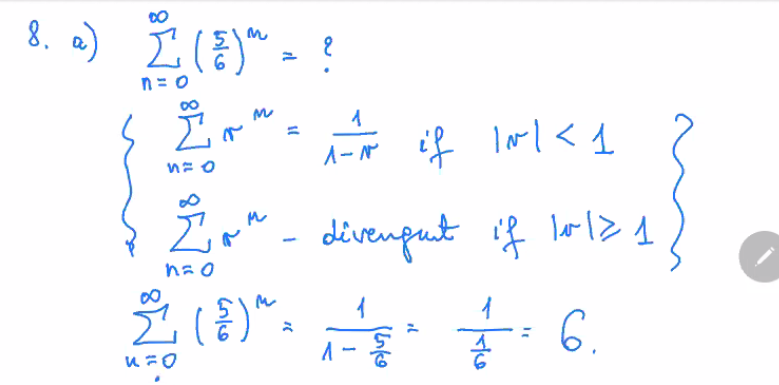 8. a) ∑_{n=0}^{∞} (5/6)^n = ?
{ ∑_{n=0}^{∞} r^n = 1/(1-r) if |r| < 1
∑_{n=0}^{∞} r^n - divergent if |r| ≥ 1 }
∑_{n=0}^{∞} (5/6)^n = 1/(1-5/6) = 1/(1/6) = 6.